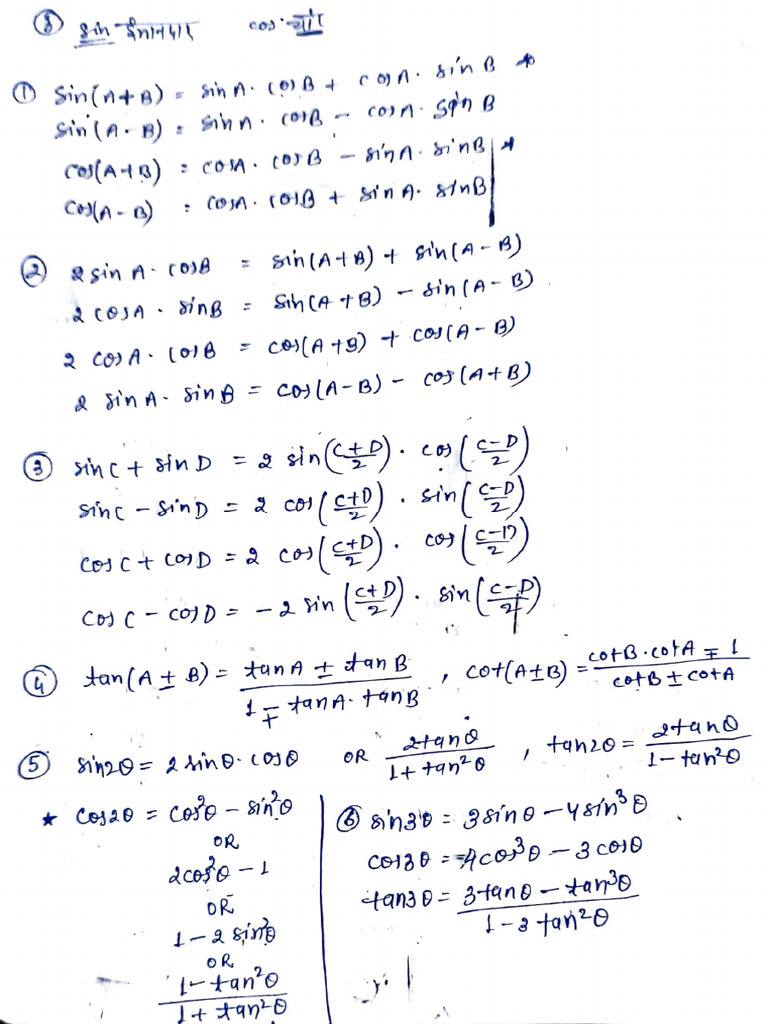 ⑧ sin ईमानदार cos चोर
① sin(A+B) = sin A · cos B + cos A · sin B *
sin(A-B) = sin A · cos B - cos A · sin B
cos(A+B) = cos A · cos B - sin A · sin B *
cos(A-B) = cos A · cos B + sin A · sin B
② 2 sin A · cos B = sin(A+B) + sin(A-B)
2 cos A · sin B = sin(A+B) - sin(A-B)
2 cos A · cos B = cos(A+B) + cos(A-B)
2 sin A · sin B = cos(A-B) - cos(A+B)
③ sin C + sin D = 2 sin((C+D)/2) · cos((C-D)/2)
sin C - sin D = 2 cos((C+D)/2) · sin((C-D)/2)
cos C + cos D = 2 cos((C+D)/2) · cos((C-D)/2)
cos C - cos D = -2 sin((C+D)/2) · sin((C-D)/2)
④ tan(A±B) = (tan A ± tan B)/(1 ∓ tan A · tan B) , cot(A±B) = (cot B · cot A ∓ 1)/(cot B ± cot A)
⑤ sin2θ = 2 sin θ · cos θ OR 2tan θ/(1 + tan²θ) , tan2θ = 2tan θ/(1 - tan²θ)
★ cos2θ = cos²θ - sin²θ
OR
2cos²θ - 1
OR
1 - 2 sin²θ
OR
(1 - tan²θ)/(1 + tan²θ)
⑥ sin3θ = 3 sin θ - 4 sin³θ
cos3θ = 4cos³θ - 3 cos θ
tan3θ = (3tan θ - tan³θ)/(1 - 3 tan²θ)